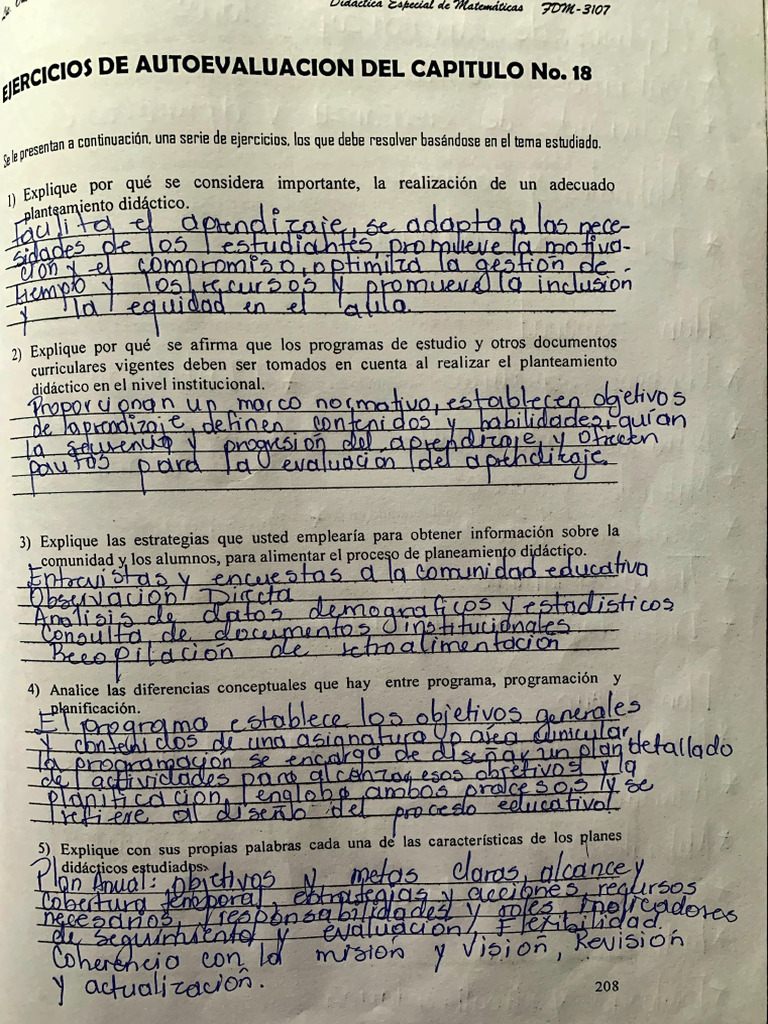 Didáctica Especial de Matemáticas FDM-3107
EJERCICIOS DE AUTOEVALUACION DEL CAPITULO No. 18
Se le presentan a continuación, una serie de ejercicios, los que debe resolver basándose en el tema estudiado.
1) Explique por qué se considera importante, la realización de un adecuado
planteamiento didáctico.
Facilita el aprendizaje, se adapta a las nece-
sidades de los estudiantes, promueve la motiva-
ción y el compromiso, optimiza la gestión de
tiempo y los recursos y promueve la inclusión
y la equidad en el aula.
2) Explique por qué se afirma que los programas de estudio y otros documentos
curriculares vigentes deben ser tomados en cuenta al realizar el planteamiento
didáctico en el nivel institucional.
Proporcionan un marco normativo, establecen objetivos
de laprendizaje, definen contenidos y habilidades, guían
la secuencia y progresión del aprendizaje, y ofrecen
pautas para la evaluación del aprendizaje.
3) Explique las estrategias que usted emplearía para obtener información sobre la
comunidad y los alumnos, para alimentar el proceso de planeamiento didáctico.
Entrevistas y encuestas a la comunidad educativa
Observación Directa
Analisis de datos demograficos y estadisticos
Consulta de documentos institucionales
Recopilación de retroalimentación
4) Analice las diferencias conceptuales que hay entre programa, programación y
planificación.
El programa establece los objetivos generales
y contenidos de una asignatura o area curricular,
la programación se encarga de diseñar un plan detallado
de actividades para alcanzar esos objetivos y la
planificación, engloba ambos procesos y se
refiere al diseño del proceso educativo.
5) Explique con sus propias palabras cada una de las características de los planes
didácticos estudiados.
Plan Anual: objetivos y metas claras, alcance y
cobertura temporal, estrategias y acciones, recursos
necesarios, responsabilidades y roles, indicadores
de seguimiento y evaluación, Flexibilidad
Coherencia con la misión y visión, Revisión
y actualización.
208